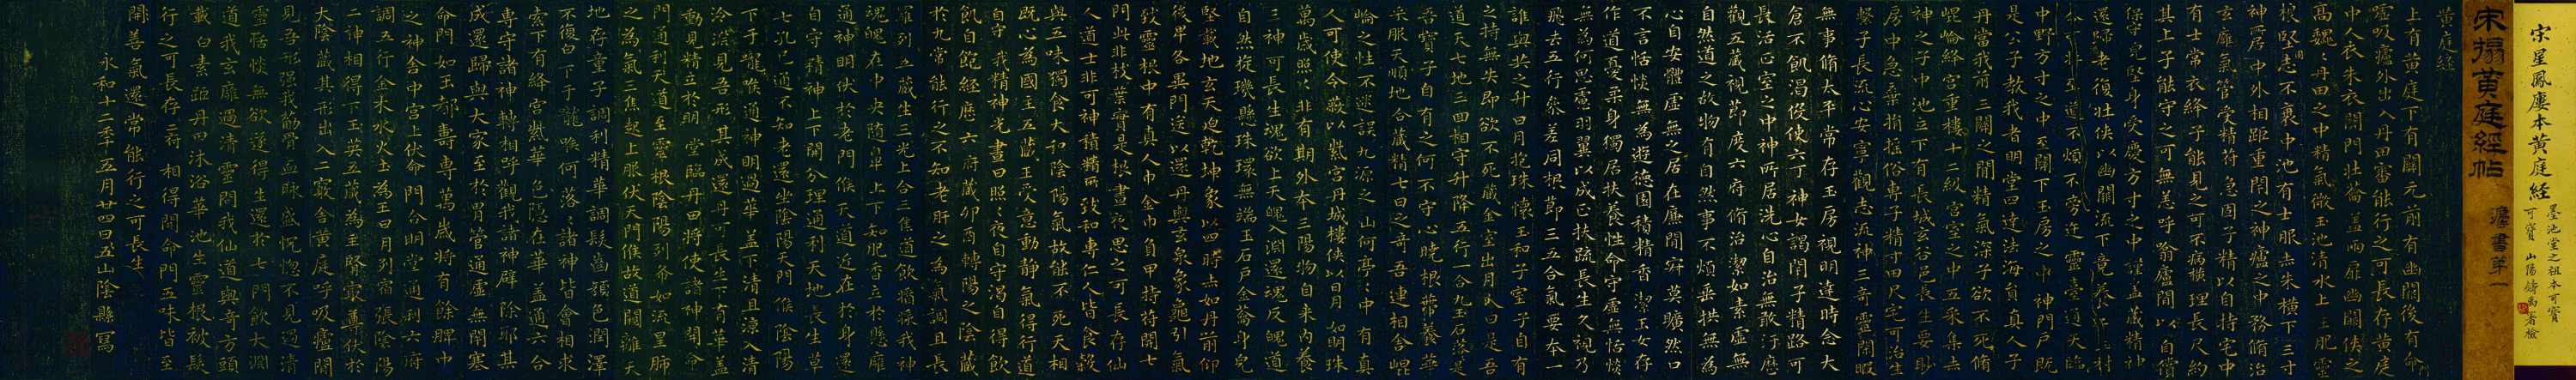 宋星鳳廔本黄庭經
墨池堂之祖本可寶
可寶 山陽鑄禹署檢
宋搨黄庭經帖
書第一
黄庭經
上有黄庭下有關元前有幽闕後有命
噓吸廬外出入丹田審能行之可長存黄庭
中人衣朱衣關門壯蘥蓋兩扉幽闕侠之
高魏〻丹田之中精氣微玉池清水上生肥靈
根堅志不衰中池有士服赤朱横下三寸
神所居中外相距重閇之神廬之中務脩治
玄廱氣管受精符急固子精以自持宅中
有士常衣絳子能見之可不病横理長尺約
其上子能守之可無恙呼噏廬間以自償
保守完堅身受慶方寸之中謹蓋藏精神
還歸老復壯侠以幽闕流下竟養子玉樹
不可杖至道不煩不旁迕靈臺通天臨
中野方寸之中至關下玉房之中神門戶既
是公子教我者明堂四達法海員真人子
丹當我前三關之間精氣深子欲不死脩
崐崘絳宮重樓十二級宮室之中五采集赤
神之子中池立下有長城玄谷邑長生要眇
房中急棄捐摇俗專子精寸田尺宅可治生
繫子長流心安寧觀志流神三奇靈閒暇
無事脩太平常存玉房視明達時念大
倉不飢渴役使六丁神女謁閇子精路可
長活正室之中神所居洗心自治無敢汙歷
觀五藏視節度六府脩治潔如素虚無
自然道之故物有自然事不煩垂拱無為
心自安體虚無之居在廉間寂莫曠然口
不言恬惔無為遊德園積精香潔玉女存
作道憂柔身獨居扶養性命守虚無恬惔
無為何思慮羽翼以成正扶疏長生久視乃
飛去五行參差同根節三五合氣要本一
誰與共之升日月抱珠懷玉和子室子自有
之持無失即欲不死藏金室出月入日是吾
道天七地三回相守升降五行一合九玉石落〻是
吾寶子自有之何不守心曉根蔕養華
采服天順地合藏精七日之奇吾連相舍崐
崘之性不迷誤九源之山何亭〻中有真
人可使令蔽以紫宮丹城樓侠以日月如明珠
萬歲照〻非有期外本三陽物自来内養
三神可長生魂欲上天魄入淵還魂反魄道
自然旋璣縣珠環無端玉石戶金蘥身皃
堅載地玄天迫乾坤象以四時赤如丹前仰
後卑各異門送以還丹與玄泉象龜引氣
致靈根中有真人巾金巾負甲持符開七
門此非枝葉實是根晝夜思之可長存仙
人道士非可神積精所致和專仁人皆食穀
與五味獨食大和陰陽氣故能不死天相
既心為國主五藏王受意動静氣得行道
自守我精神光晝日照〻夜自守渴自得飲
飢自飽經歷六府藏卯酉轉陽之陰藏
於九常能行之不知老肝之為氣調且長
羅列五藏生三光上合三焦道飲醬漿我神
魂魄在中央随鼻上下知肥香立於懸廱
通神明伏於老門候天道近在於身還
自守精神上下開分理通利天地長生草
七孔已通不知老還坐陰陽天門候陰陽
下于嚨喉通神明過華蓋下清且涼入清
泠淵見吾形其成還丹可長生下有華蓋
動見精立於明堂臨丹田將使諸神開命
門通利天道至靈根陰陽列布如流星肺
之為氣三焦起上服伏天門候故道闚離天
地存童子調利精華調髮齒顏色潤澤
不復白下于嚨喉何落〻諸神皆會相求
索下有絳宮紫華色隠在華蓋通六合
專守諸神轉相呼觀我諸神辟除耶其
成還歸與大家至於胃管通虚無閇塞
命門如玉都壽專萬歲將有餘脾中
之神舍中宮上伏命門合明堂通利六府
調五行金木水火土為王日月列宿張陰陽
二神相得下玉英五藏為主腎㝡尊伏於
大陰藏其形出入二竅舍黄庭呼吸廬間
見吾形强我筋骨血脉盛怳惚不見過清
靈恬惔無欲遂得生還於七門飲大淵
道我玄廱過清靈問我仙道與奇方頭
載白素距丹田沐浴華池生靈根被髮
行之可長存二府相得開命門五味皆至
開善氣還常能行之可長生
永和十二年五月廿四日五山陰縣寫